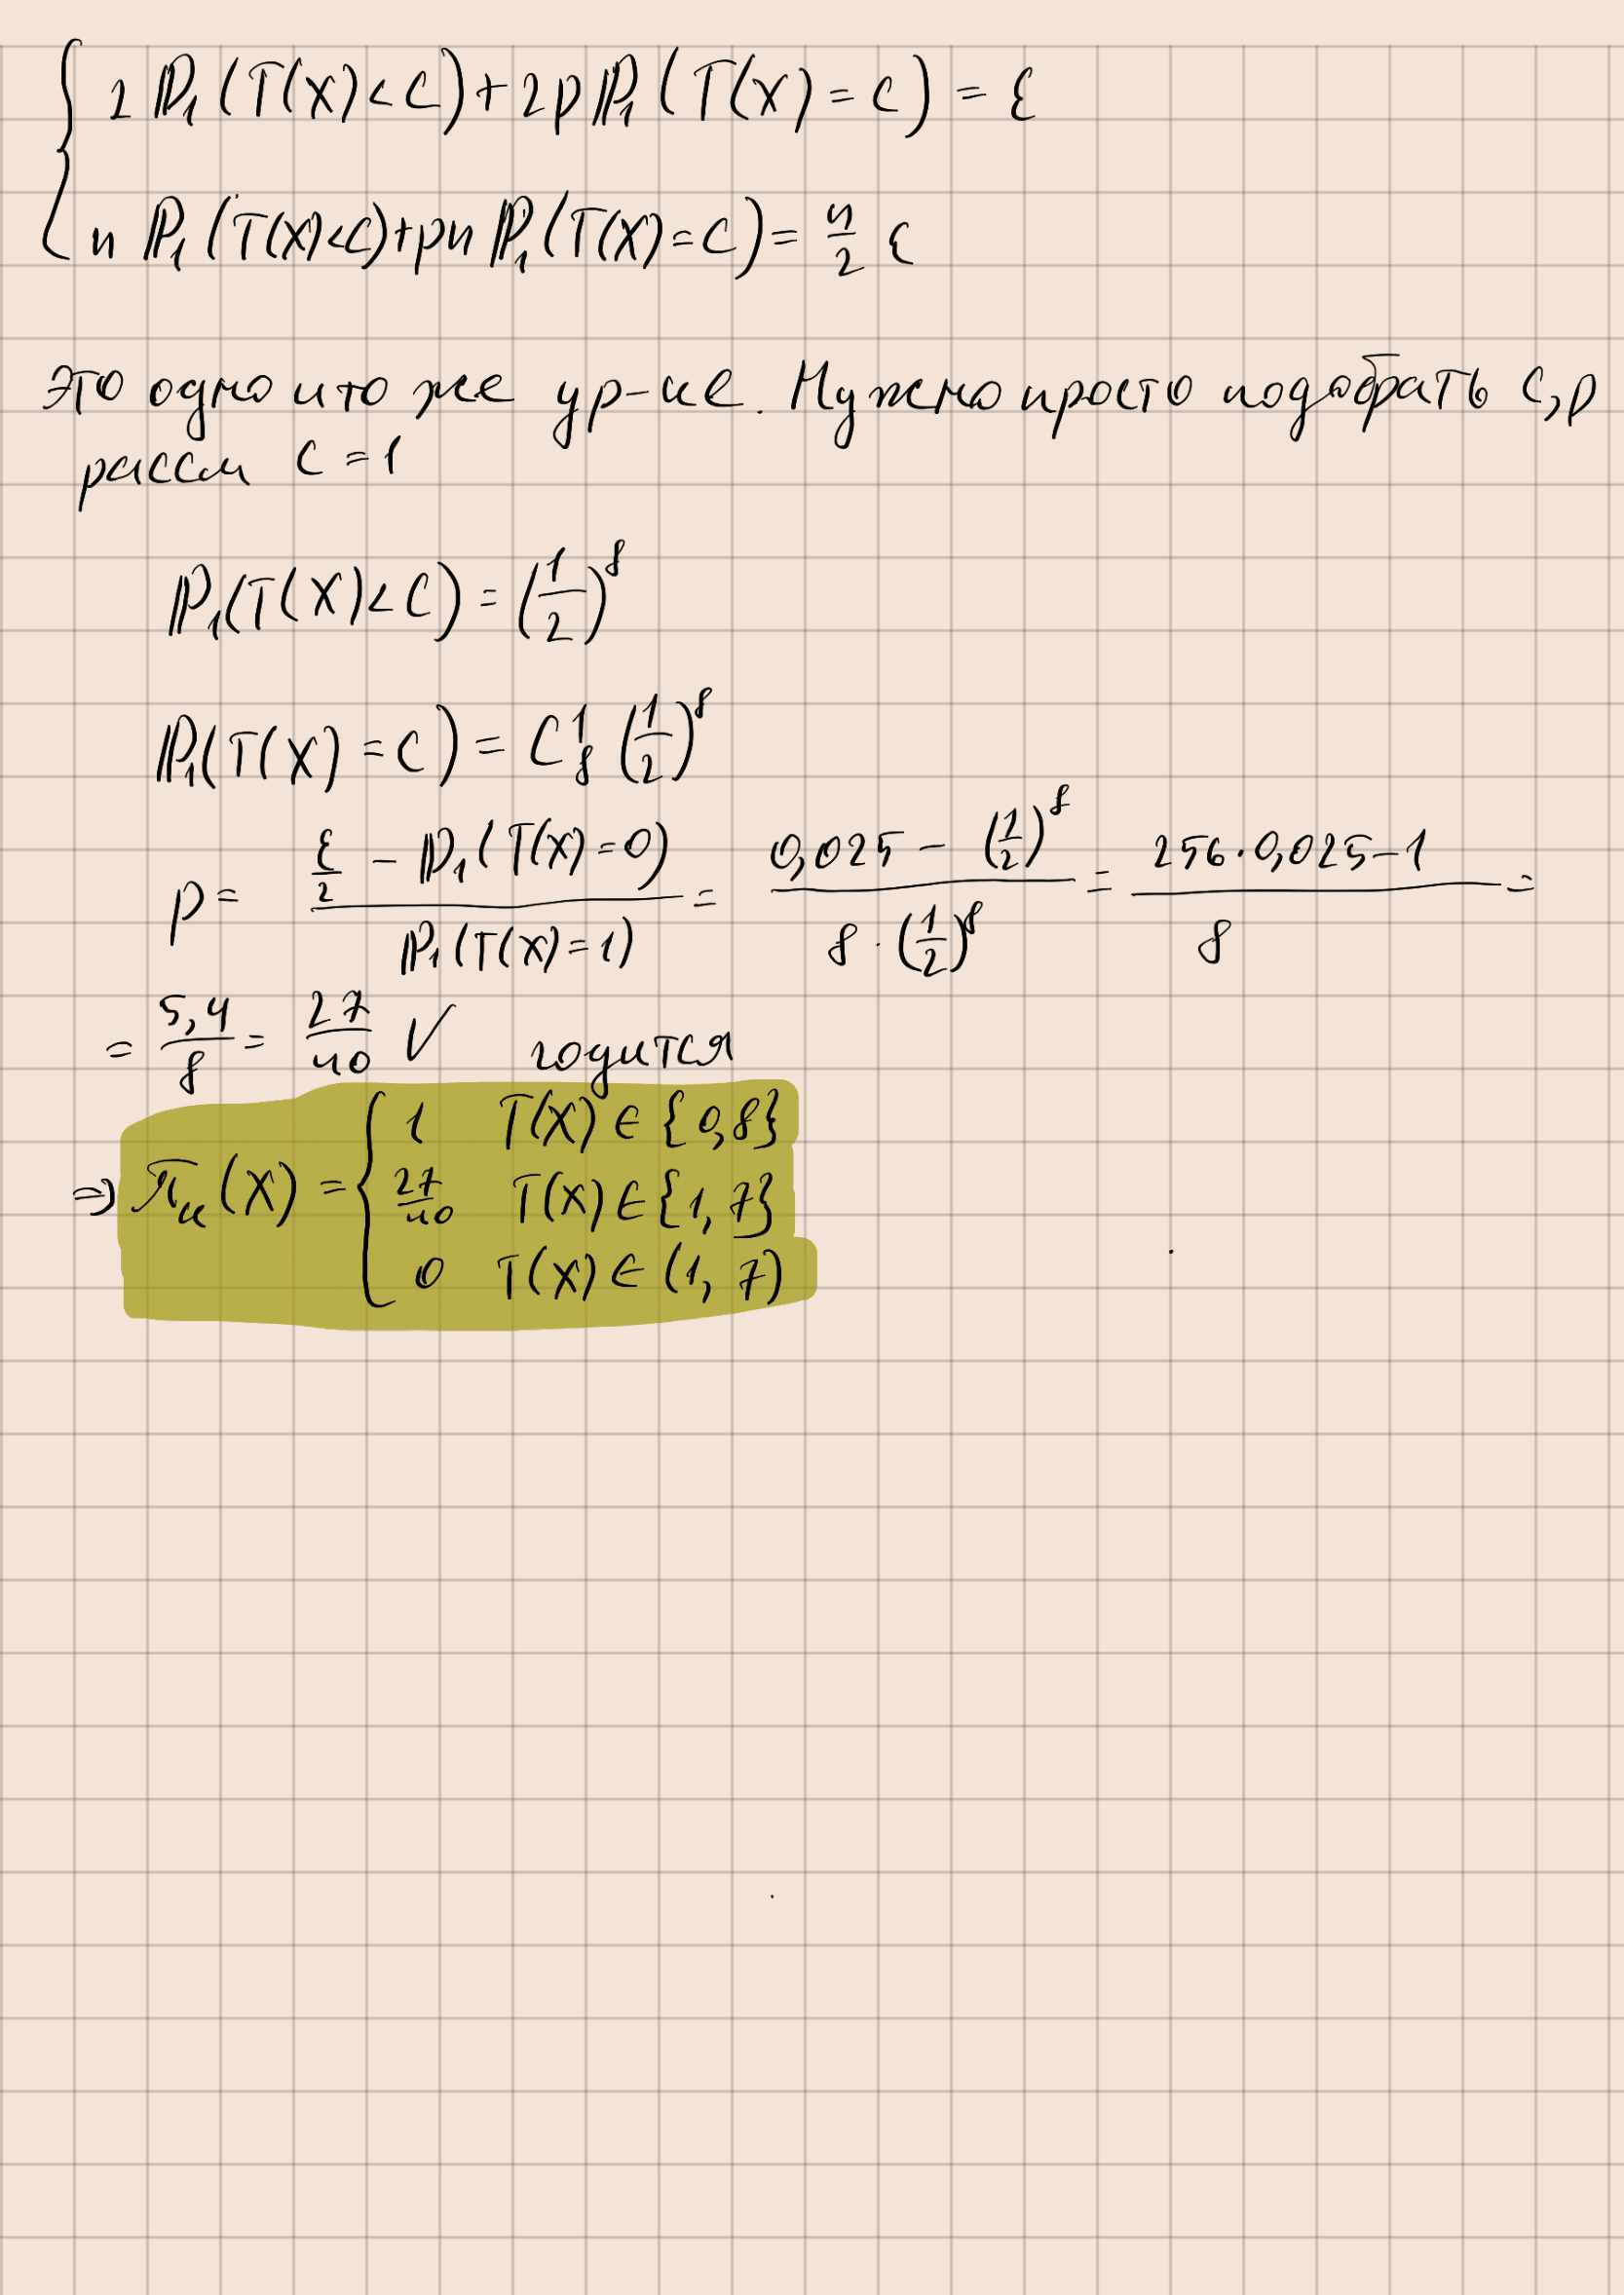 { 2 ℙ₁(T(X)<C)+2pℙ₁(T(X)=C) = ε
n ℙ₁(T(X)<C)+pn ℙ₁(T(X)=C)= n/2 ε
Это одно и то же ур-ие. Нужно просто подобрать C, p
рассм C = 1
ℙ₁(T(X)<C) = (1/2)^8
ℙ₁(T(X)=C) = C_8^1 (1/2)^8
p = (ε/2 - ℙ₁(T(X)=0))/(ℙ₁(T(X)=1)) = (0,025 - (1/2)^8)/(8·(1/2)^8) = (256·0,025-1)/8 =
= 5,4/8 = 27/40 V годится
⇒ π_u(X) = { 1 T(X) ∈ {0,8}
27/40 T(X) ∈ {1, 7}
0 T(X) ∈ (1, 7)